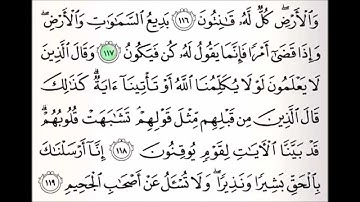 وَٱلْأَرْضِ ۖ كُلٌّ لَّهُۥ قَـٰنِتُونَ ١١٦ بَدِيعُ ٱلسَّمَـٰوَٰتِ وَٱلْأَرْضِ ۖ
وَإِذَا قَضَىٰٓ أَمْرًا فَإِنَّمَا يَقُولُ لَهُۥ كُن فَيَكُونُ ١١٧ وَقَالَ ٱلَّذِينَ
لَا يَعْلَمُونَ لَوْلَا يُكَلِّمُنَا ٱللَّهُ أَوْ تَأْتِينَآ ءَايَةٌ ۗ كَذَٰلِكَ
قَالَ ٱلَّذِينَ مِن قَبْلِهِم مِّثْلَ قَوْلِهِمْ ۘ تَشَـٰبَهَتْ قُلُوبُهُمْ ۗ
قَدْ بَيَّنَّا ٱلْـَٔايَـٰتِ لِقَوْمٍ يُوقِنُونَ ١١٨ إِنَّآ أَرْسَلْنَـٰكَ
بِٱلْحَقِّ بَشِيرًا وَنَذِيرًا ۖ وَلَا تُسْـَٔلُ عَنْ أَصْحَـٰبِ ٱلْجَحِيمِ ١١٩